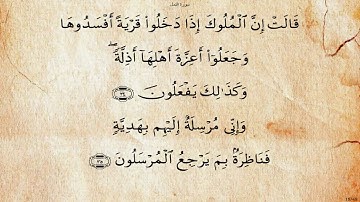 سورة النمل
قَالَتْ إِنَّ ٱلْمُلُوكَ إِذَا دَخَلُوا۟ قَرْيَةً أَفْسَدُوهَا
وَجَعَلُوٓا۟ أَعِزَّةَ أَهْلِهَآ أَذِلَّةً ۖ
وَكَذَٰلِكَ يَفْعَلُونَ ٣٤
وَإِنِّى مُرْسِلَةٌ إِلَيْهِم بِهَدِيَّةٍ
فَنَاظِرَةٌۢ بِمَ يَرْجِعُ ٱلْمُرْسَلُونَ ٣٥